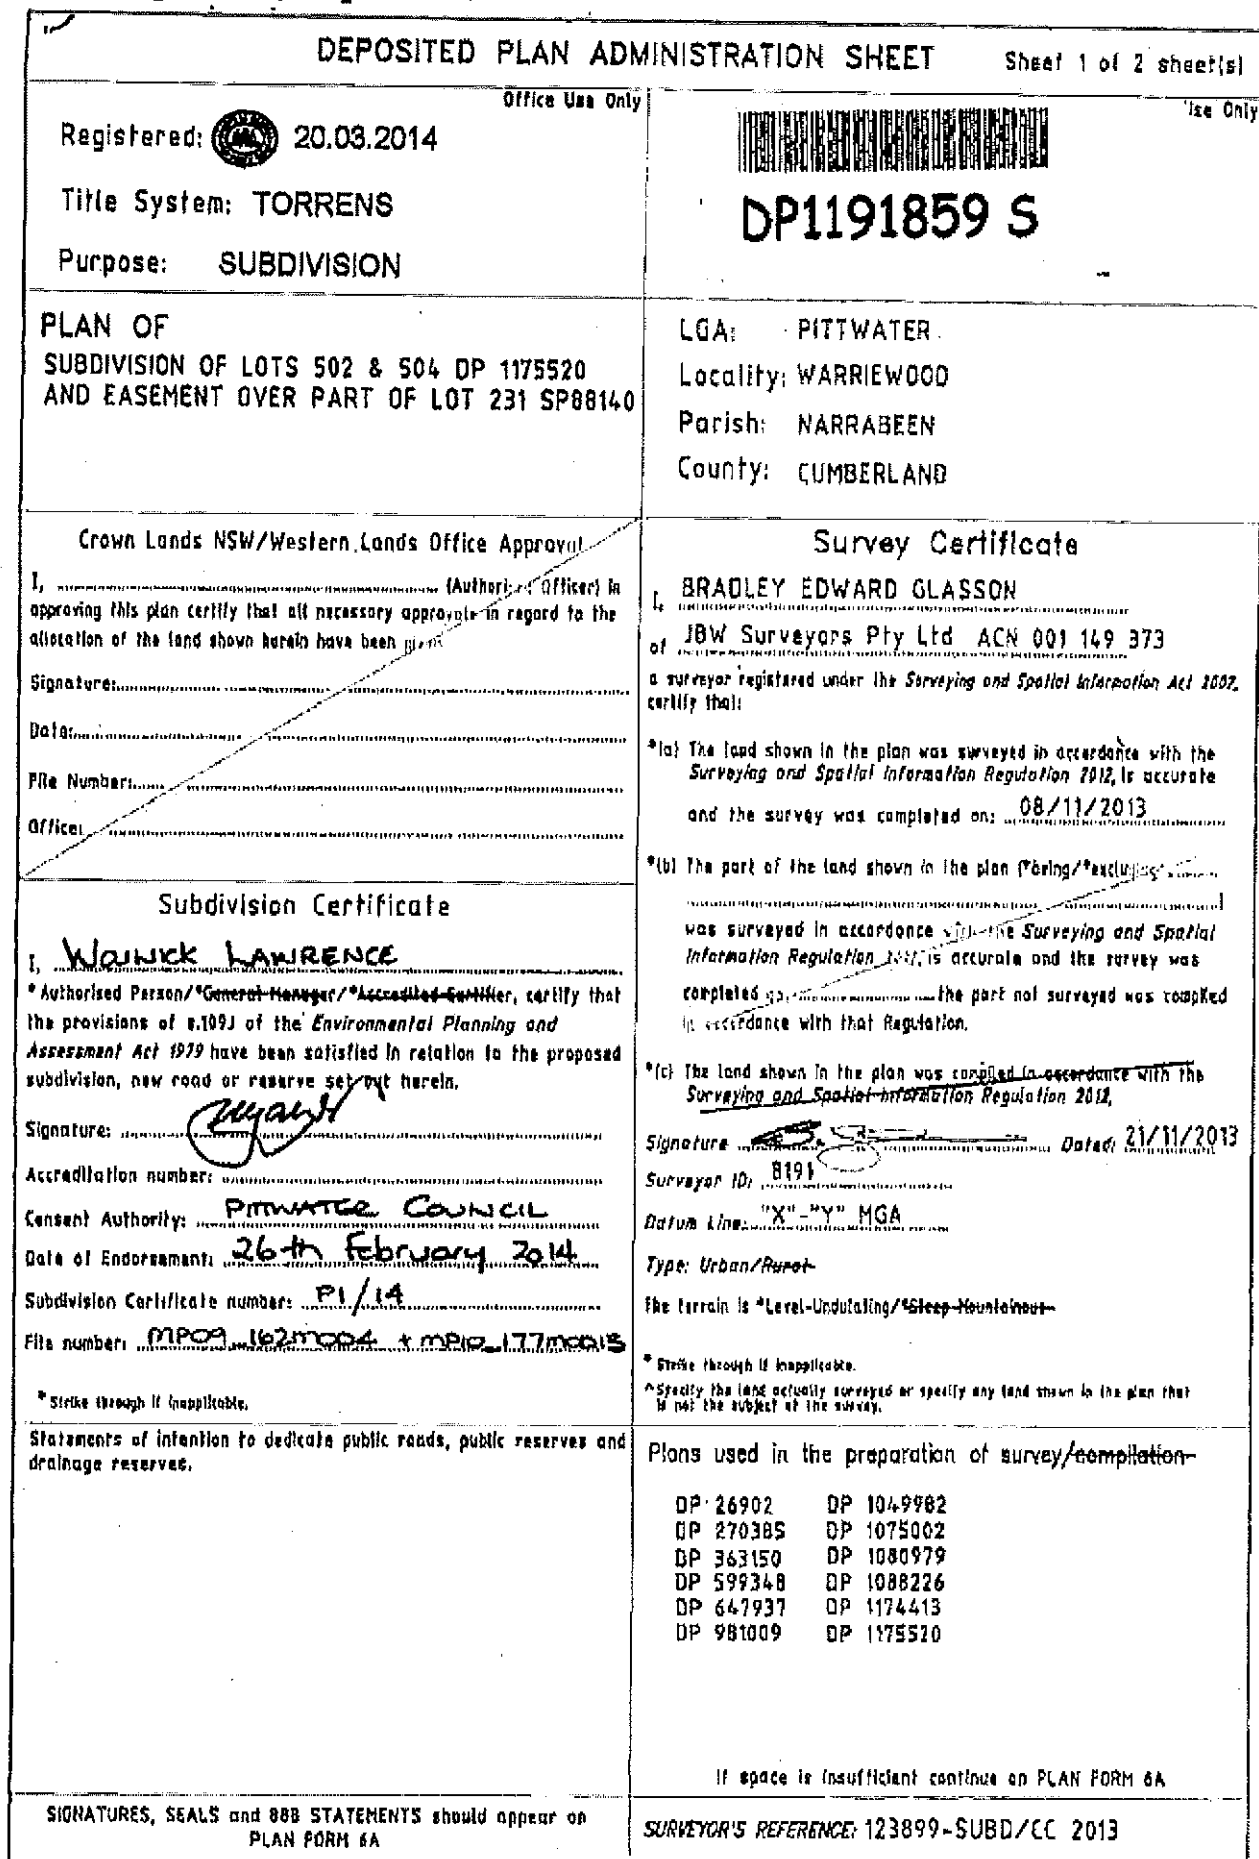 DEPOSITED PLAN ADMINISTRATION SHEET Sheet 1 of 2 sheet(s)
Office Use Only
Registered: 20.03.2014
Title System: TORRENS
Purpose: SUBDIVISION
Use Only
DP1191859 S
PLAN OF
SUBDIVISION OF LOTS 502 & 504 DP 1175520
AND EASEMENT OVER PART OF LOT 231 SP88140
LGA: PITTWATER
Locality: WARRIEWOOD
Parish: NARRABEEN
County: CUMBERLAND
Crown Lands NSW/Western Lands Office Approval
I, (Authorized Officer) in
approving this plan certify that all necessary approvals in regard to the
allocation of the land shown herein have been given
Signature:
Date:
File Number:
Office:
Subdivision Certificate
I, Warwick LAWRENCE
*Authorised Person/*General Manager/*Accredited Certifier, certify that
the provisions of s.109J of the Environmental Planning and
Assessment Act 1979 have been satisfied in relation to the proposed
subdivision, new road or reserve set out herein.
Signature:
Accreditation number:
Consent Authority: PITTWATER COUNCIL
Date of Endorsement: 26th February 2014
Subdivision Certificate number: P1/14
File number: MP09_162MOD4 + MP10_177MOD13
* Strike through if inapplicable.
Survey Certificate
I, BRADLEY EDWARD GLASSON
of JBW Surveyors Pty Ltd ACN 001 149 373
a surveyor registered under the Surveying and Spatial Information Act 2002,
certify that:
*(a) The land shown in the plan was surveyed in accordance with the
Surveying and Spatial Information Regulation 2012, is accurate
and the survey was completed on: 08/11/2013
*(b) The part of the land shown in the plan (*being/*excluding^
)
was surveyed in accordance with the Surveying and Spatial
Information Regulation 2012, is accurate and the survey was
completed on, the part not surveyed was compiled
in accordance with that Regulation.
*(c) The land shown in the plan was compiled in accordance with the
Surveying and Spatial Information Regulation 2012,
Signature Dated: 21/11/2013
Surveyor ID: 8191
Datum Line: "X"-"Y" MGA
Type: Urban/Rural
The terrain is *Level-Undulating/*Steep-Mountainous
* Strike through if inapplicable.
^ Specify the land actually surveyed or specify any land shown in the plan that
is not the subject of the survey.
Statements of intention to dedicate public roads, public reserves and
drainage reserves.
Plans used in the preparation of survey/compilation
DP 26902 DP 1049982
DP 270385 DP 1075002
DP 363150 DP 1080979
DP 599348 DP 1088226
DP 647937 DP 1174413
DP 981009 DP 1175520
If space is insufficient continue on PLAN FORM 6A
SIGNATURES, SEALS and 88B STATEMENTS should appear on
PLAN FORM 6A
SURVEYOR'S REFERENCE: 123899-SUBD/CC 2013